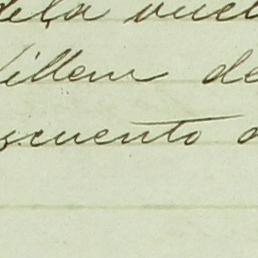 deça vuel
illem de
scuento d